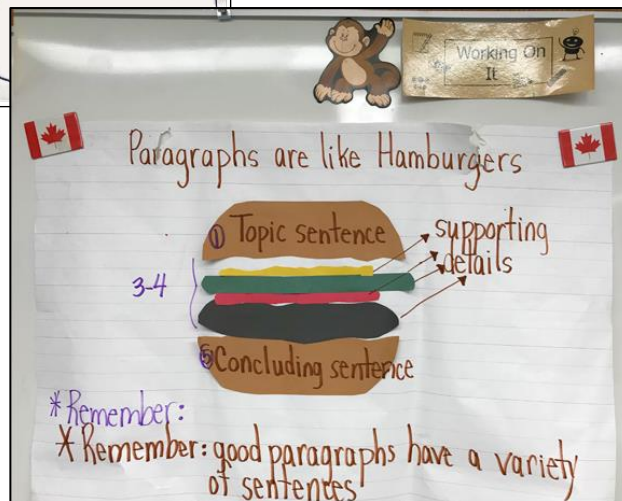 Working On
It
Paragraphs are like Hamburgers
① Topic sentence
supporting
details
3-4
⑤ Concluding sentence
*Remember:
*Remember: good paragraphs have a variety
of sentences